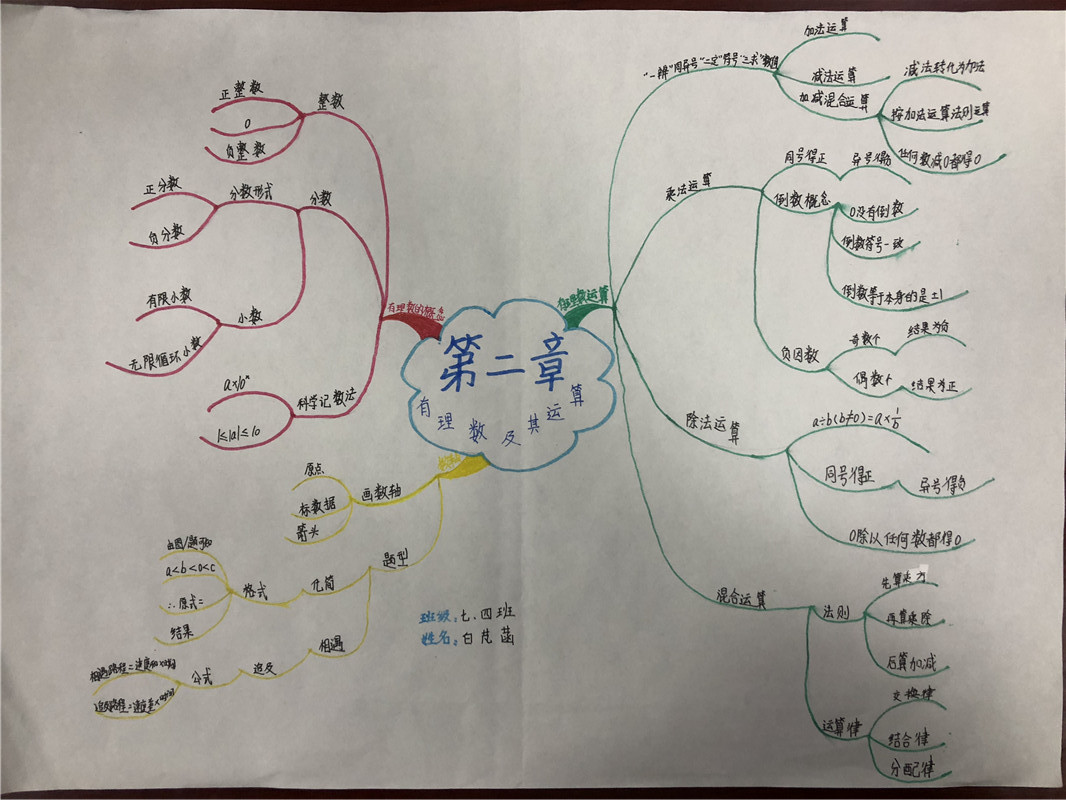 第二章
有理数及其运算
有理数的概念
整数
正整数
0
负整数
分数
分数形式
正分数
负分数
小数
有限小数
无限循环小数
科学记数法
a×10ⁿ
1≤|a|≤10
画数轴
原点
标数据
箭头
题型
化简
格式
由图/题可知
a<b<0<c
∴原式=
结果
相遇
追及
公式
班级:七.四班
姓名:白芃菡
有理数运算
"一辨"同异号"二定"符号"三求"数值
加法运算
减法运算
加减混合运算
减法转化为加法
按加法运算法则运算
任何数减0都得0
乘法运算
同号得正
异号得负
倒数概念
0没有倒数
倒数符号一致
倒数等于本身的是±1
负因数
奇数个
结果为负
偶数个
结果为正
除法运算
a÷b(b≠0)=a×1/b
同号得正
异号得负
0除以任何数都得0
混合运算
法则
先算乘方
再算乘除
后算加减
运算律
交换律
结合律
分配律